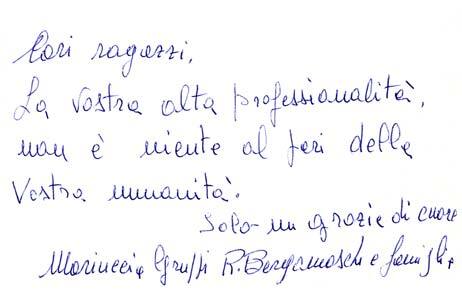 Cari ragazzi,
La Vostra alta professionalità,
non è niente al pari della
Vostra umanità.
Solo un grazie di cuore
Mariuccia R. Bergamaschi e famiglia